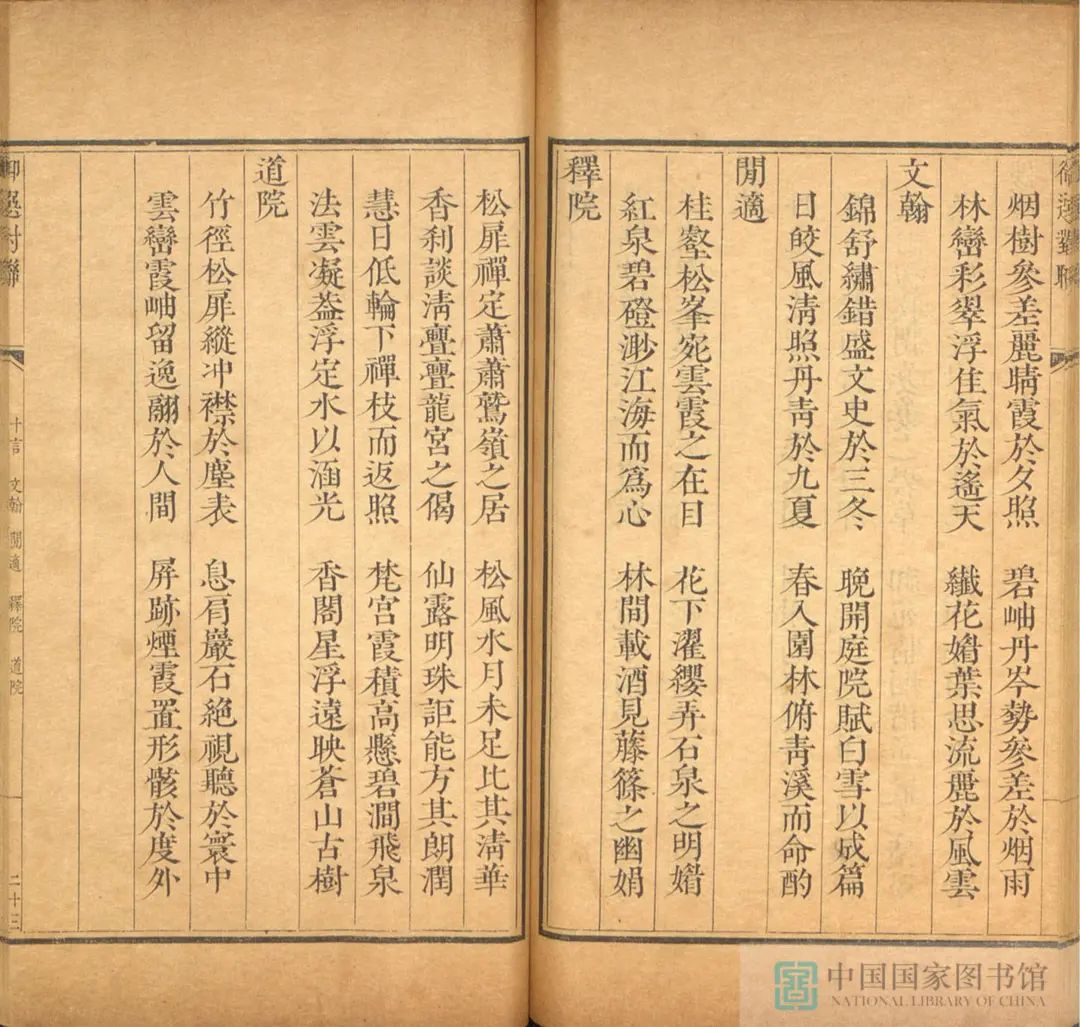 御選對聯
烟樹參差麗晴霞於夕照　碧岫丹岑勢參差於烟雨
林巒彩翠浮佳氣於遙天　纖花媠葉思流麗於風雲
文翰
錦舒繡錯盛文史於三冬　晚開庭院賦白雪以成篇
日皎風淸照丹靑於九夏　春入園林俯靑溪而命酌
閒適
桂壑松峯宛雲霞之在目　花下濯纓弄石泉之明媠
紅泉碧磴渺江海而爲心　林間載酒見藤篠之幽娟
釋院
松扉禪定蕭蕭鷲嶺之居　松風水月未足比其淸華
香刹談淸亹亹龍宮之偈　仙露明珠詎能方其朗潤
慧日低輪下禪枝而返照　梵宮霞積高懸碧澗飛泉
法雲凝葢浮定水以涵光　香閣星浮遠映蒼山古樹
道院
竹徑松扉縱冲襟於塵表　息肩巖石絶視聽於寰中
雲巒霞岫留逸翮於人間　屏跡煙霞置形骸於度外
御選對聯
十言　文翰　閒適　釋院　道院
二十三
中国国家图书馆
NATIONAL LIBRARY OF CHINA